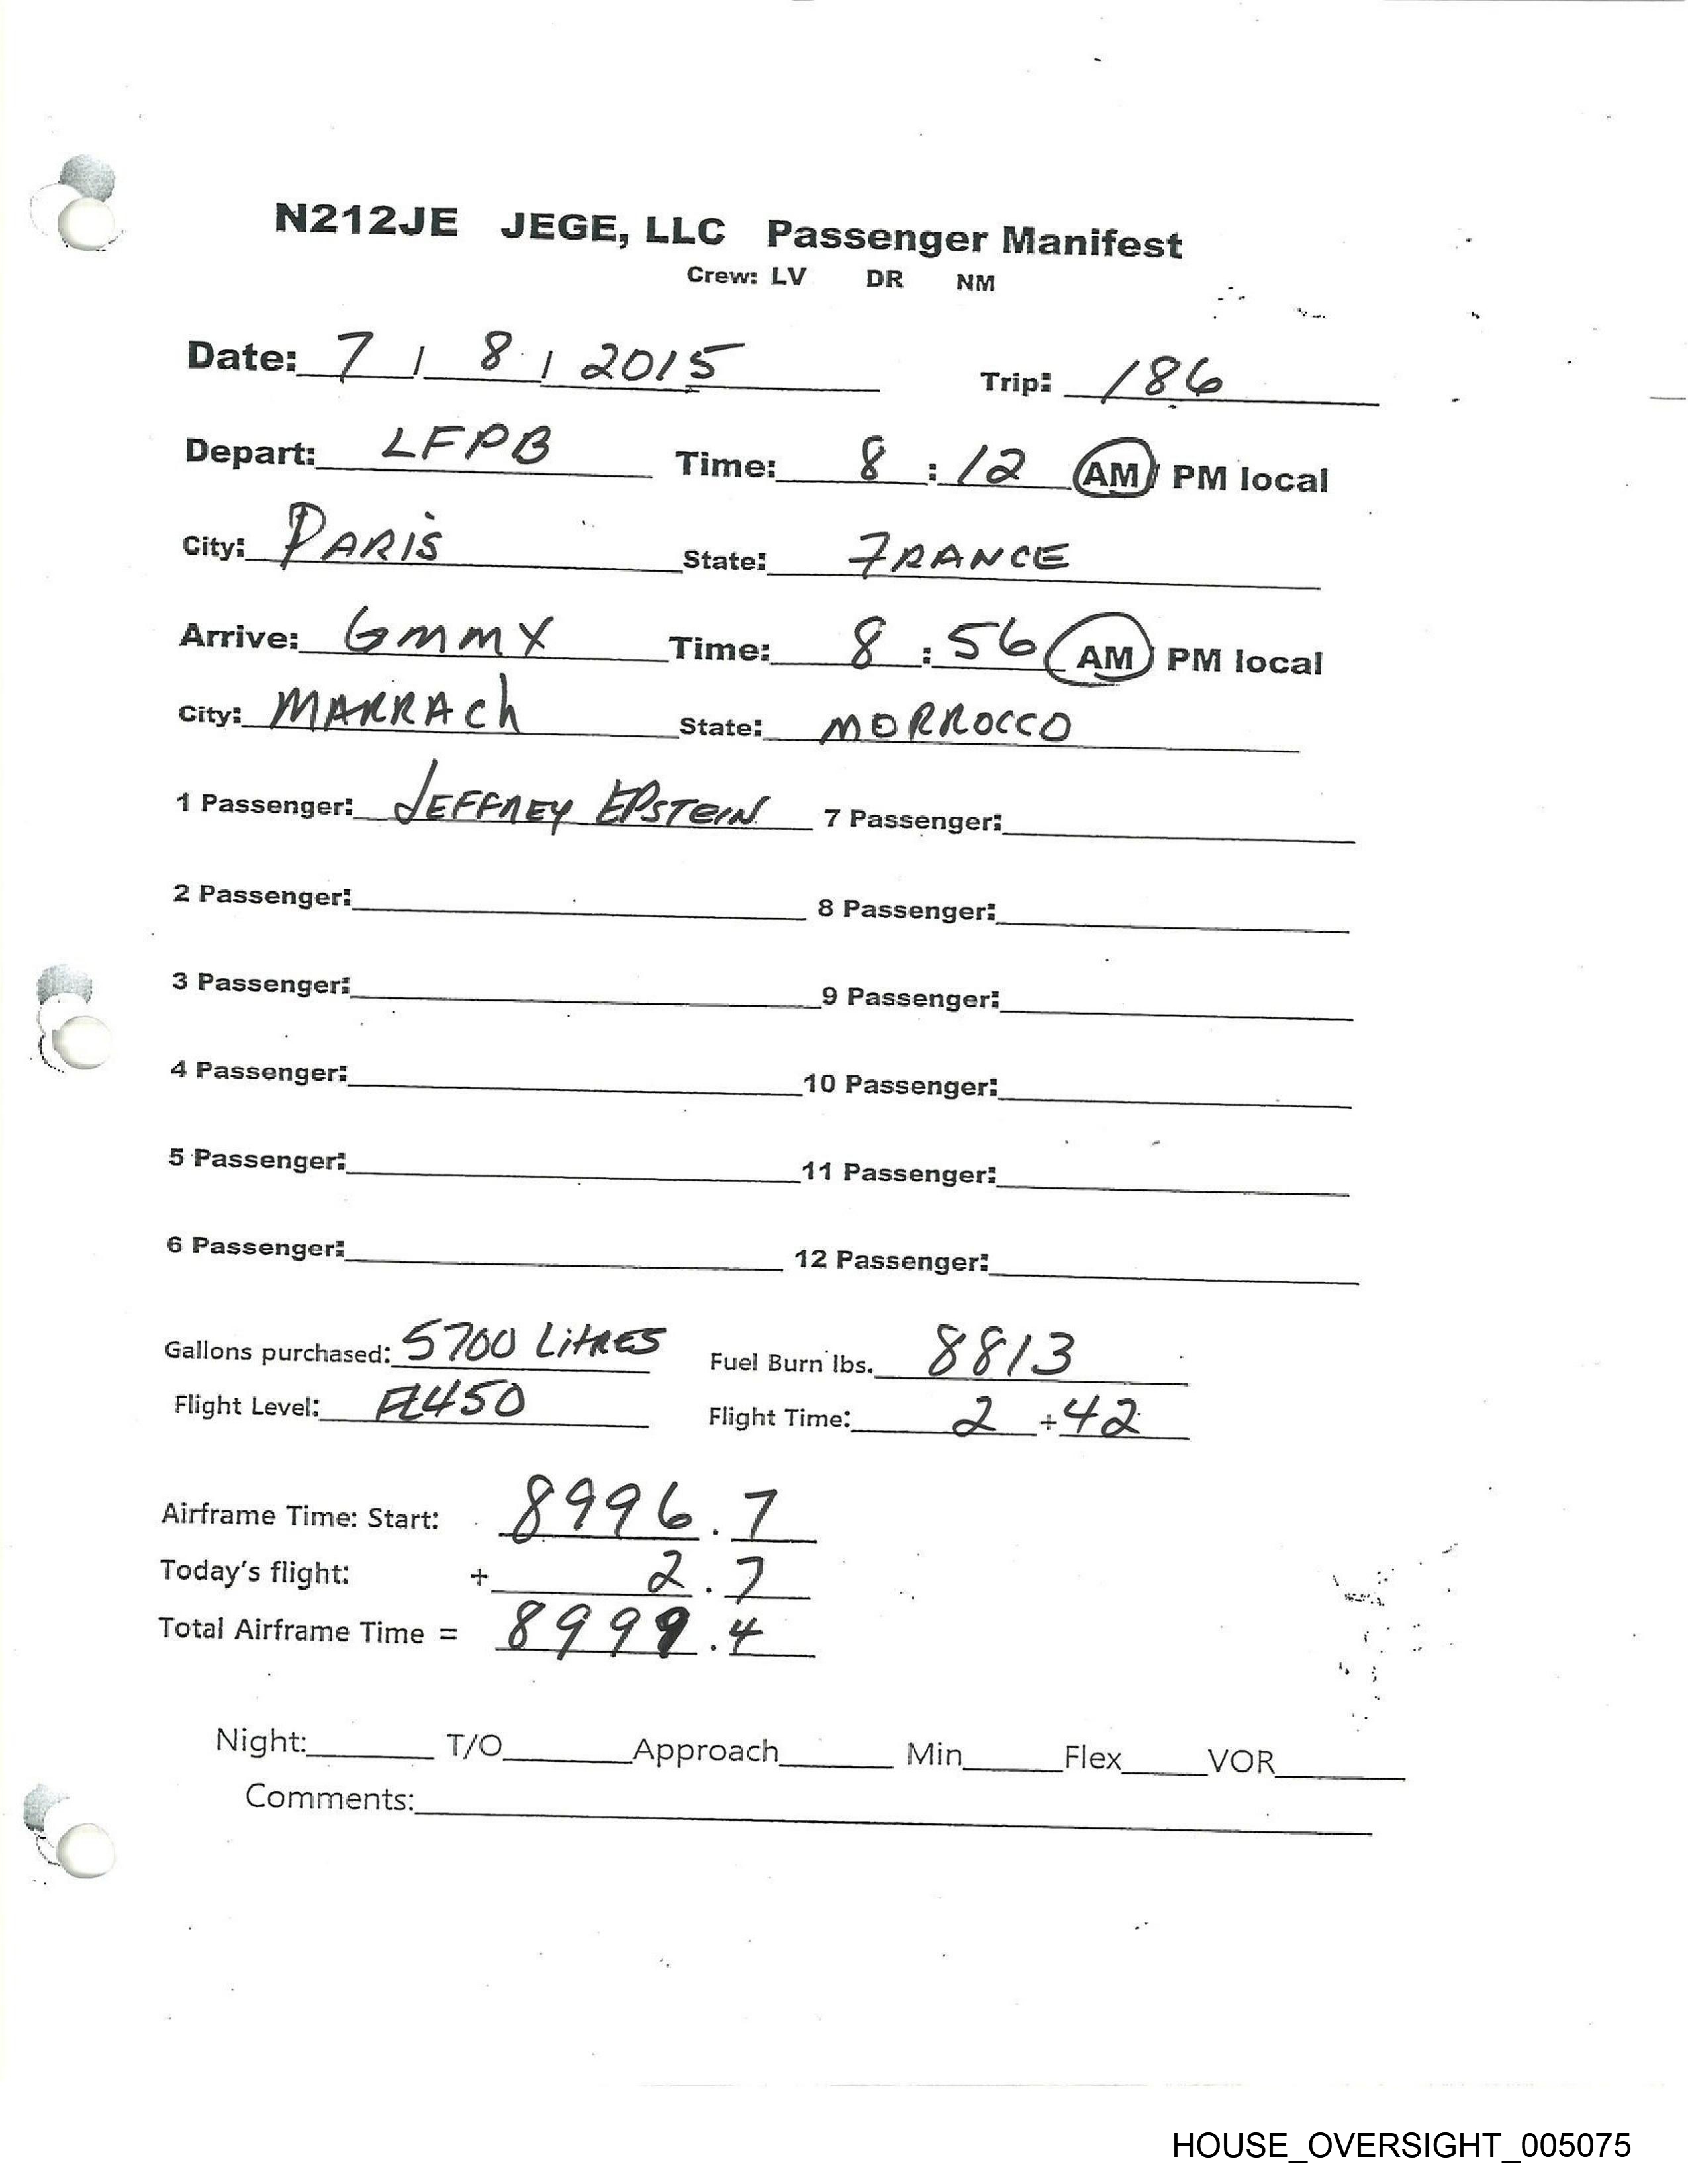 N212JE JEGE, LLC Passenger Manifest
Crew: LV DR NM
Date: 7 / 8 / 2015 Trip: 186
Depart: LFPB Time: 8 : 12 AM / PM local
City: PARIS State: FRANCE
Arrive: GMMX Time: 8 : 56 AM / PM local
City: MARRACh State: MORROCCO
1 Passenger: JEFFREY EPSTEIN 7 Passenger:
2 Passenger: 8 Passenger:
3 Passenger: 9 Passenger:
4 Passenger: 10 Passenger:
5 Passenger: 11 Passenger:
6 Passenger: 12 Passenger:
Gallons purchased: 5700 LitRES Fuel Burn lbs. 8813
Flight Level: FL450 Flight Time: 2 + 42
Airframe Time: Start: 8996.7
Today's flight: + 2.7
Total Airframe Time = 8999.4
Night: T/O Approach Min Flex VOR
Comments:
HOUSE_OVERSIGHT_005075